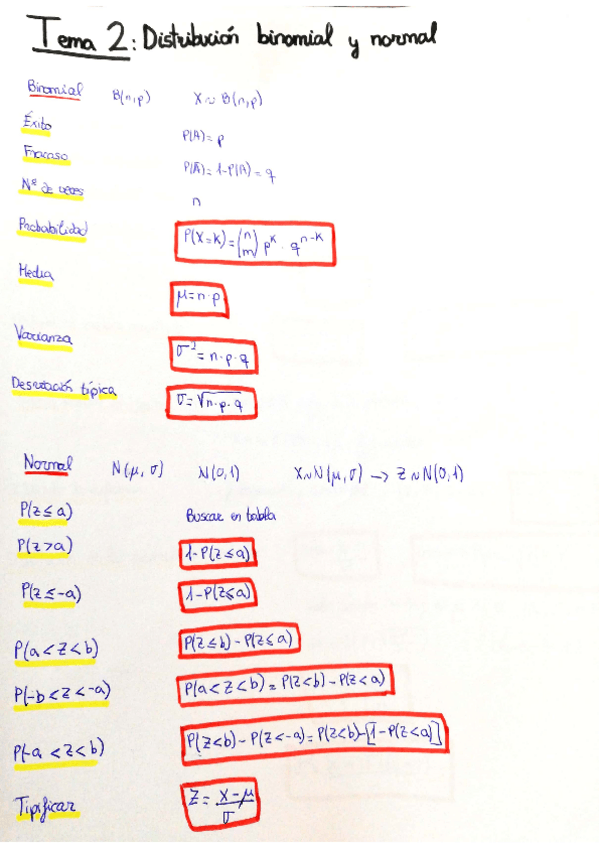 Tema 2: Distribución binomial y normal
Binomial B(n,p) X ~ B(n,p)
Éxito P(A) = p
Fracaso P(Ā) = 1-P(A) = q
Nº de veces n
Probabilidad P(X=K) = (n m) p^K · q^(n-K)
Media μ = n·p
Varianza σ² = n·p·q
Desviación típica σ = √n·p·q
Normal N(μ, σ) N(0,1) X~N(μ, σ) → Z ~ N(0,1)
P(z ≤ a) Buscar en tabla
P(z > a) 1-P(z ≤ a)
P(z ≤ -a) 1-P(z ≤ a)
P(a < z < b) P(z ≤ b) - P(z ≤ a)
P(-b < z < -a) P(a < z < b) = P(z < b) - P(z < a)
P(-a < z < b) P(z < b) - P(z < -a) = P(z < b) - [1-P(z < a)]
Tipificar z = (x-μ)/σ